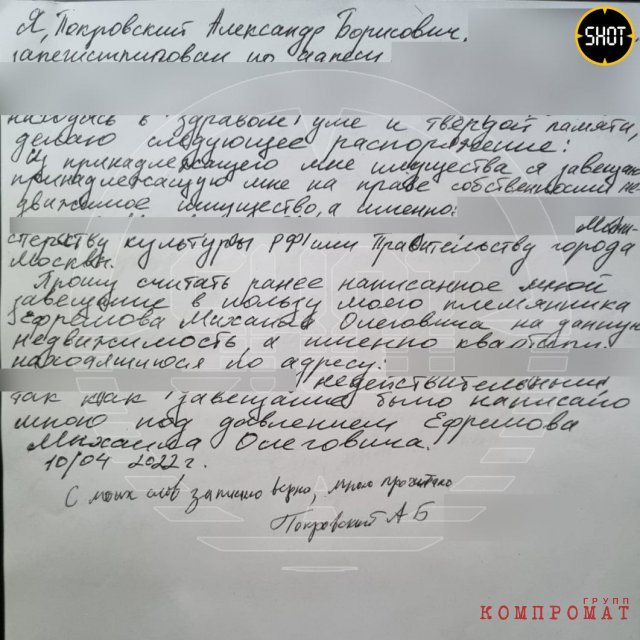 Я, Покровский Александр Борисович,
SHOT
зарегистрирован по адресу
находясь в здравом уме и твердой памяти,
делаю следующее распоряжение:
Из принадлежащего мне имущества я завещаю
принадлежащую мне на праве собственности не-
движимое имущество, а именно:
Мини-
стерству культуры РФ или Правительству города
Москвы.
Прошу считать ранее написанное мной
завещание в пользу моего племянника
Ефремова Михаила Олеговича на данную
недвижимость а именно квартиры
находящиюся по адресу:
недействительным
так как завещание было написано
мною под давлением Ефремова
Михаила Олеговича.
10/04 2022 г.
С моих слов записано верно, мною прочитано
Покровский А Б
ГРУПП
КОМПРОМАТ